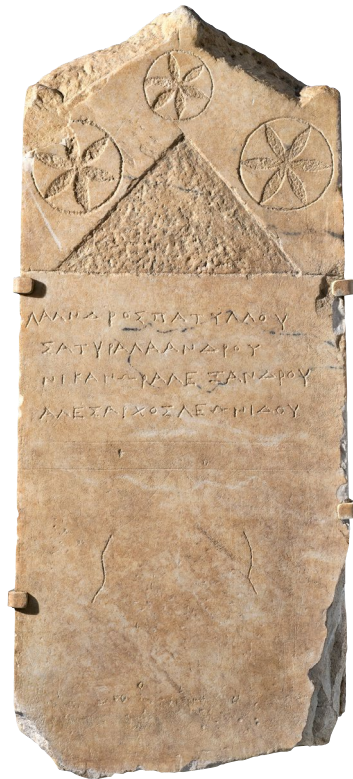 ΛΑΑΝΔΡΟΣΠΑΤΥΛΛΟΥ
ΣΑΤΥΡΑΛΑΑΝΔΡΟΥ
ΝΙΚΑΝΔΡΑΑΛΕΞΑΝΔΡΟΥ
ΑΛΕΣΑΙΧΟΣΛΕΩΝΙΔΟΥ